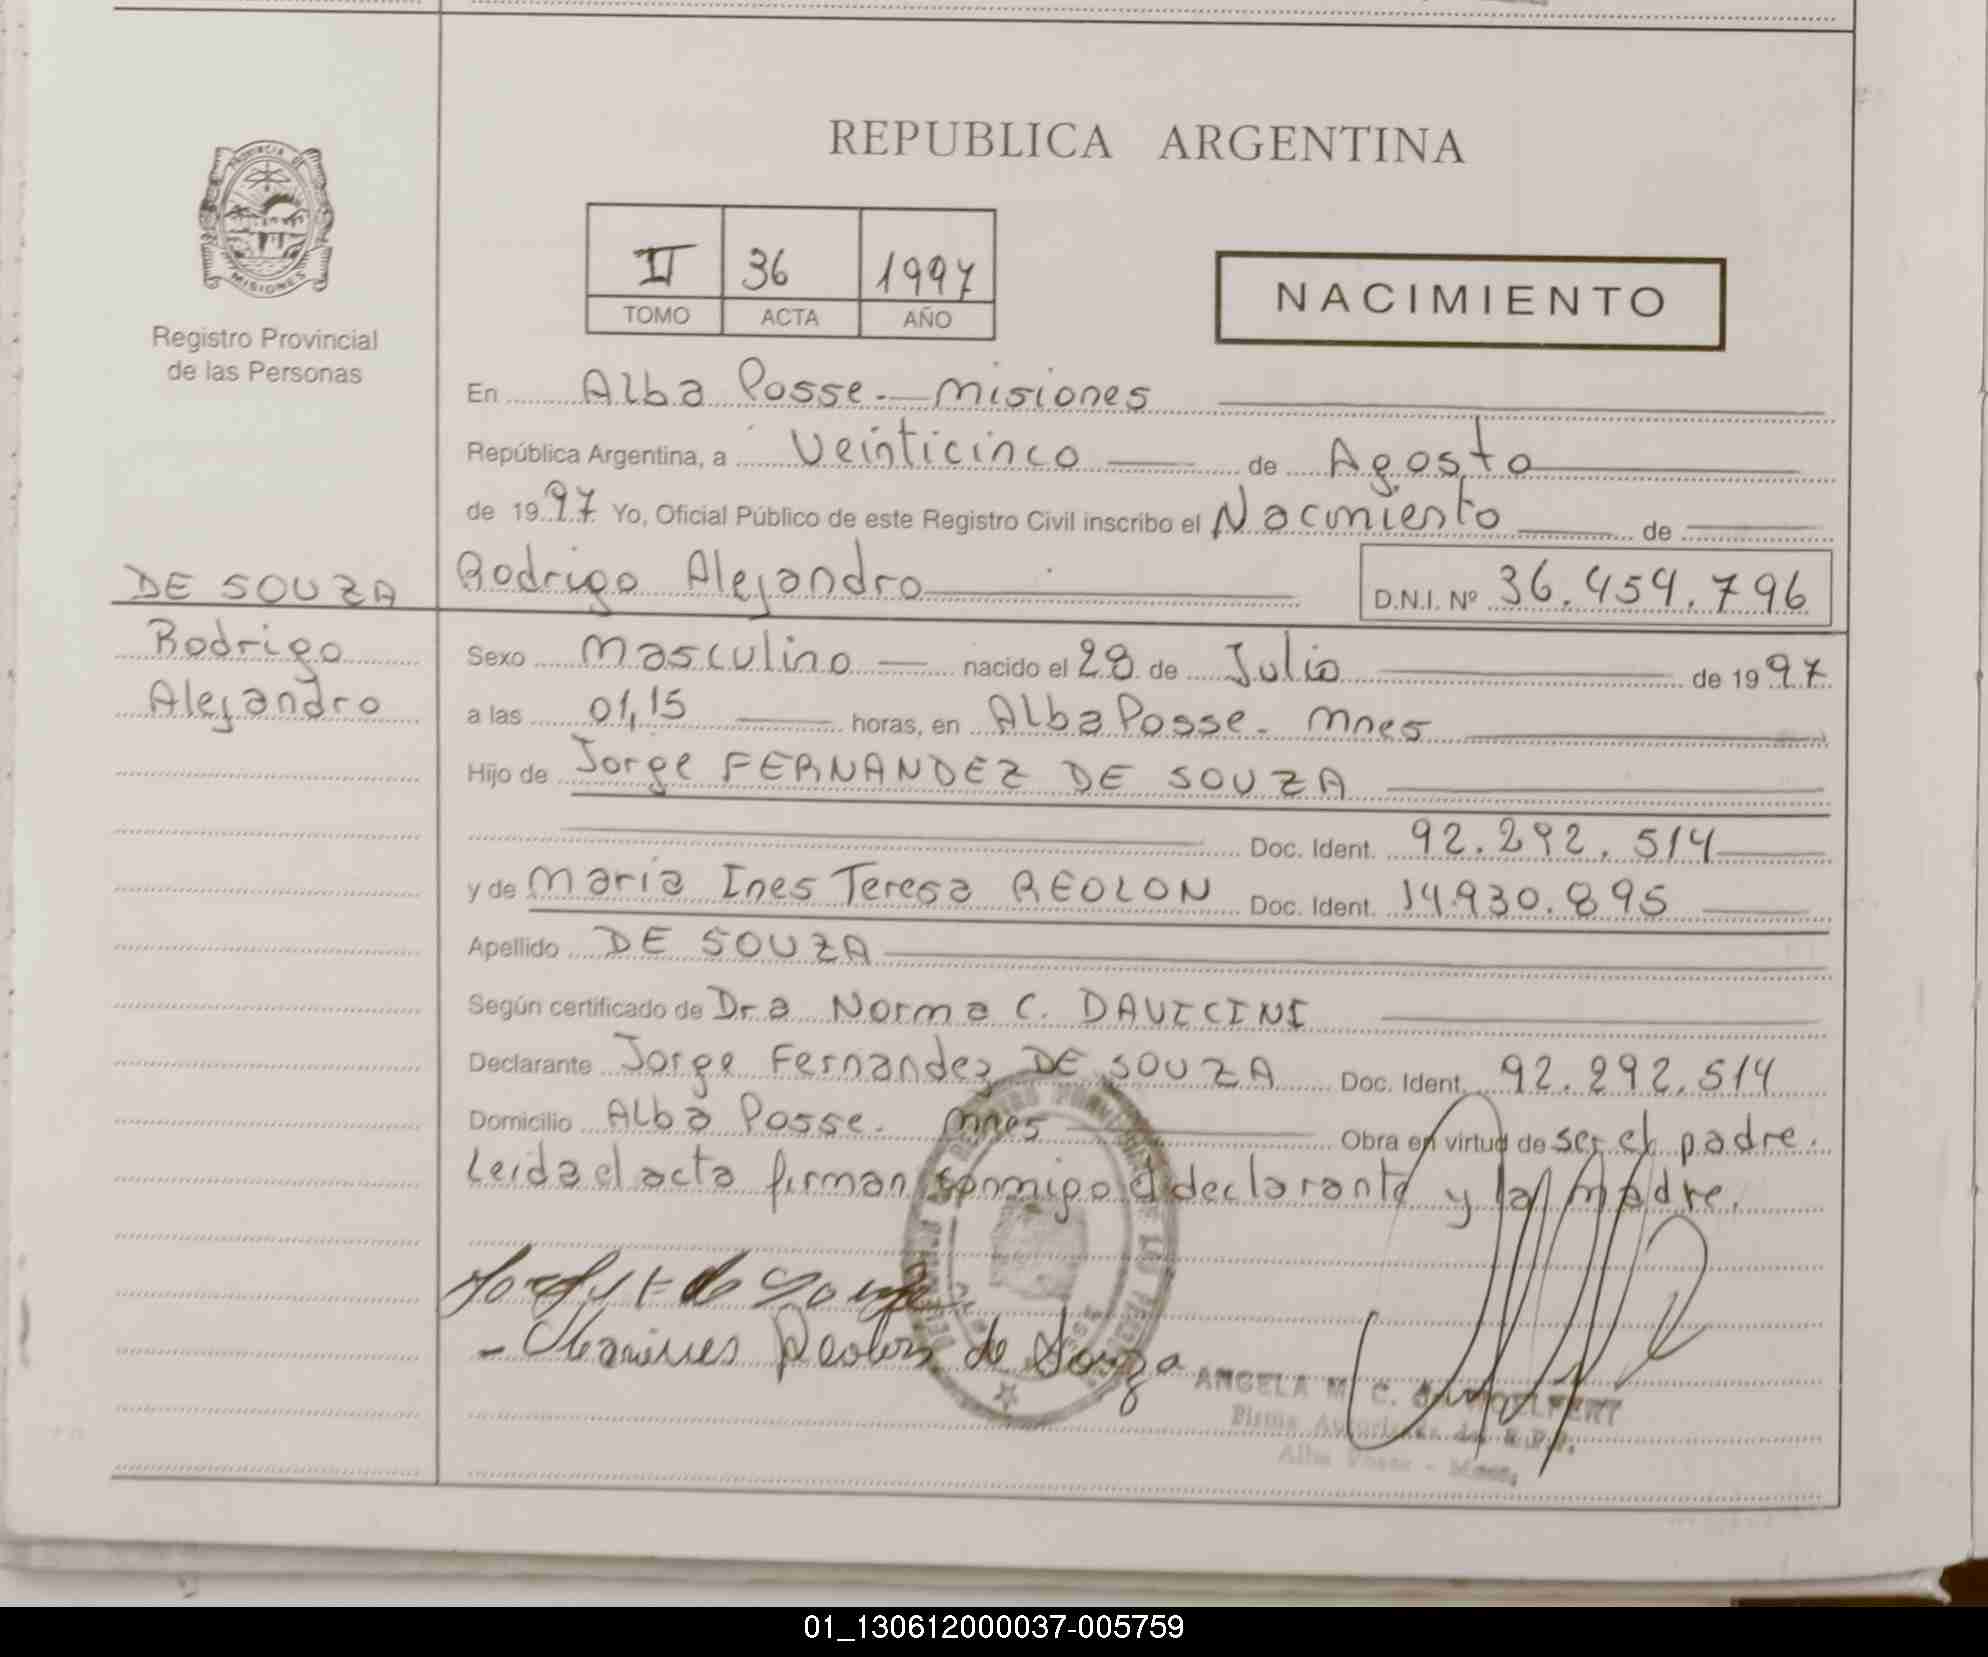 PROVINCIA DE
MISIONES
Registro Provincial
de las Personas
DE SOUZA
Rodrigo
Alejandro
REPUBLICA ARGENTINA
II 36 1997
TOMO ACTA AÑO
NACIMIENTO
En Alba Posse - Misiones
República Argentina, a Veinticinco de Agosto
de 1997 Yo, Oficial Público de este Registro Civil inscribo el Nacimiento de
Rodrigo Alejandro D.N.I. Nº 36.459.796
Sexo Masculino nacido el 28 de Julio de 1997
a las 01,15 horas, en Alba Posse - Mnes
Hijo de Jorge FERNANDEZ DE SOUZA
Doc. Ident. 92.292.514
y de Maria Ines Teresa REOLON Doc. Ident. 14.930.895
Apellido DE SOUZA
Según certificado de Dra Norma C. DAVICINI
Declarante Jorge Fernandez DE SOUZA Doc. Ident. 92.292.514
Domicilio Alba Posse. Mnes Obra en virtud de ser el padre.
Leida el acta firman conmigo el declarante y la madre.
Reolon de Souza
ANGELA M. C.
Firma Autorizada del R.P.P.
Alba Posse - Mnes.
01_130612000037-005759